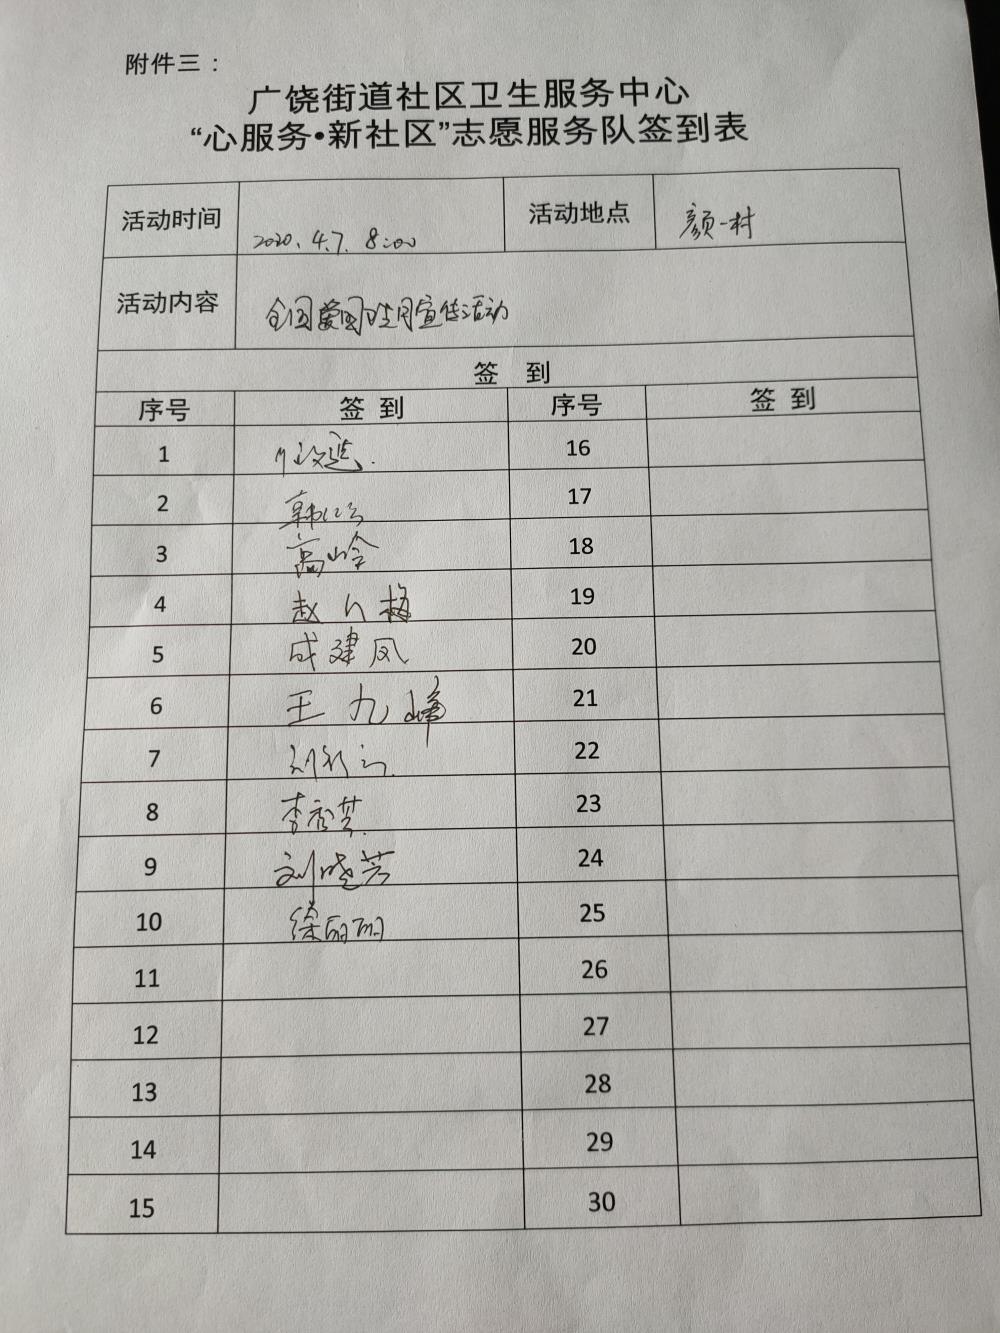 附件三：
广饶街道社区卫生服务中心
“心服务•新社区”志愿服务队签到表
活动时间 2020.4.7. 8:00 活动地点 颜一村
活动内容 全国爱国卫生月宣传活动
签 到
序号 签到 序号 签到
1 16
2 韩 17
3 高山岭 18
4 赵 梅 19
5 成建凤 20
6 王九峰 21
7 刘 22
8 李秀芝. 23
9 刘晓芳 24
10 徐丽丽 25
11 26
12 27
13 28
14 29
15 30